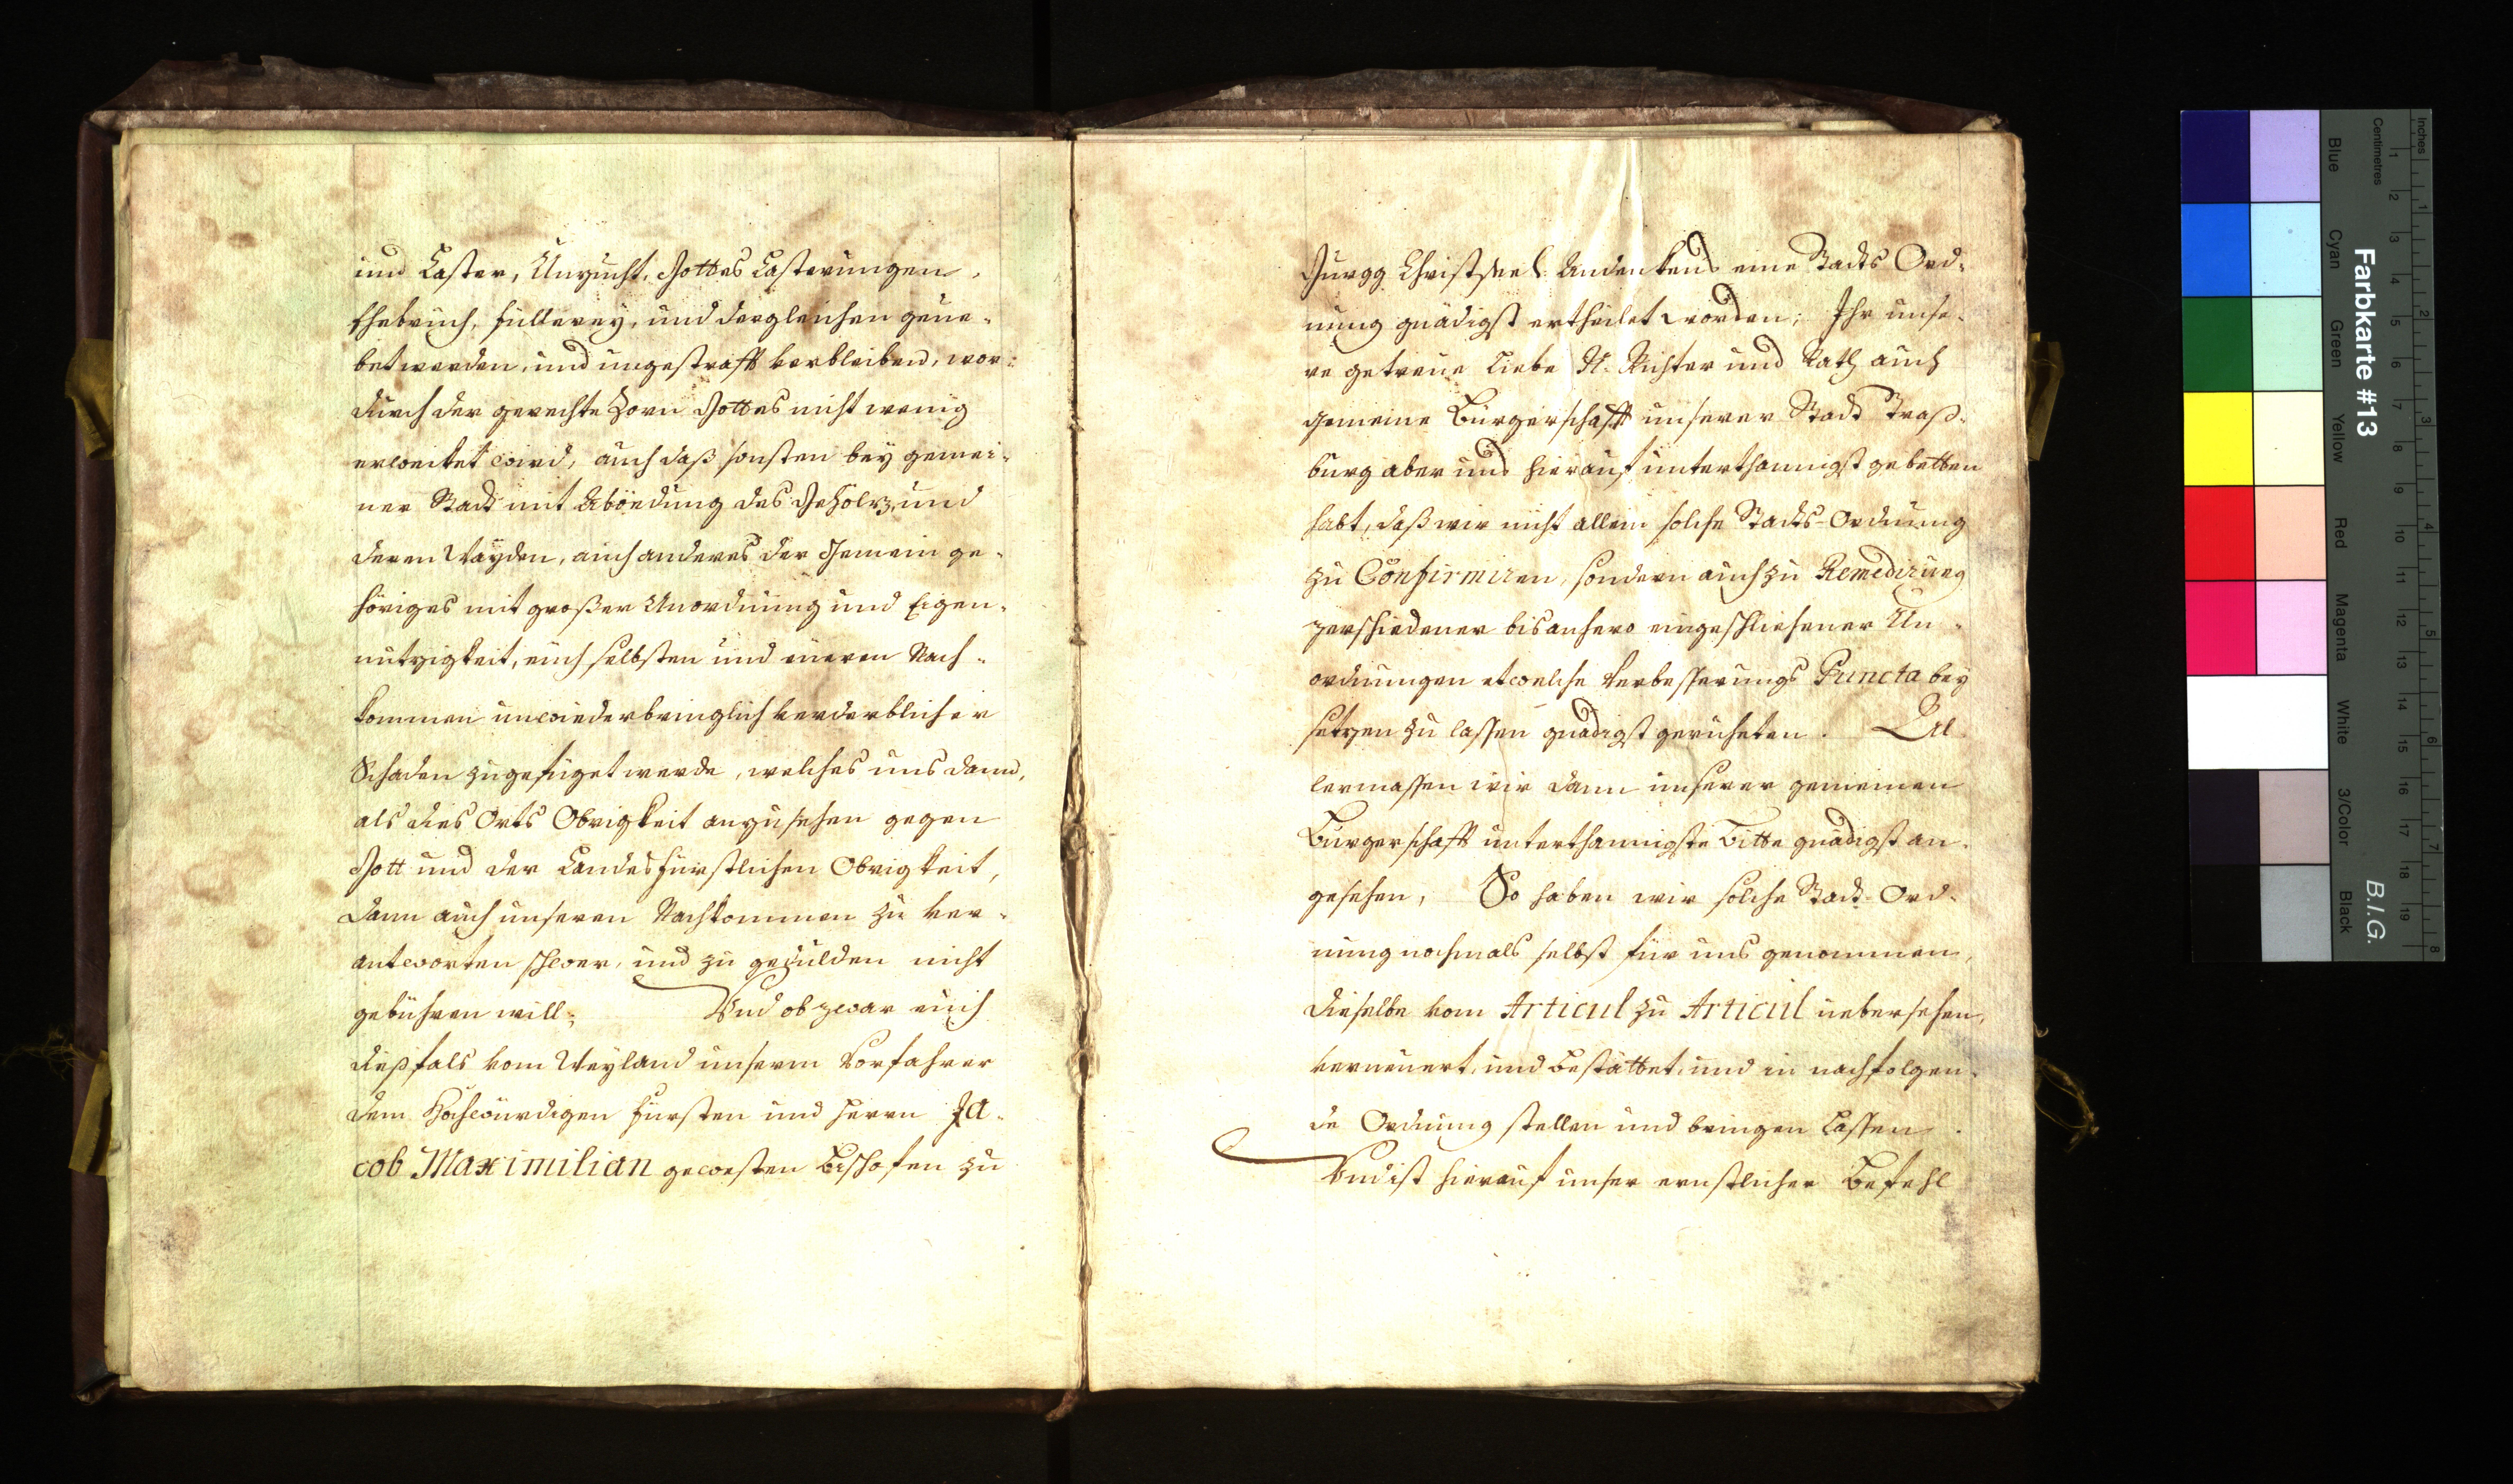 und Laster, Unzucht, Gottes Lasterungen,
Ehebruch, füllerey, und dergleichen geüe-
bet werden, und ungestrafft verbleiben, wor-
durch der gerechte Zorn Gottes nicht wenig
erweiket wird, auch daß sonsten bey gemei-
ner Stadt mit Abödung des Gehölz, und
deren Wayden, auch anderes der Gemein ge-
höriges mit großer Unordnung und Eigen-
nutzigkeit, euch selbsten und eueren Nach-
kommen unwiederbringlich verderblicher
Schaden zugefüget werde, welches uns dann,
als dies Orts Obrigkeit anzusehen gegen
Gott und der Landesfürstlichen Obrigkeit,
dann auch unseren Nachkommen zu ver-
antworten schwer, und zu gedulden nicht
gebühren will; Und ob zwar euch
dießfals vom Weyland unserm Vorfahrer
dem Hochwürdigen fürsten und Herrn Ja-
cob Maximilian gewesten Bischofen zu
Gurgg Christseel: Andenkens eine Stadts Ord-
nung gnädigst ertheilet worden; Ihr unse-
re getreue Liebe N. Richter und Rath auch
gemeine Bürgerschafft unserer Stadt Straß-
burg aber uns hierauf unterthannigst gebetten
habt, daß wir nicht allein solche Stadts-Ordnung
zu Confirmiren, sondern auch zu Remedirung
verschiedener bis anhero eingeschlichener Un-
ordnungen etwelche Verbesserungs Puncta bey
setzen zu lassen gnädigst geruheten. Al
lermassen wir dann unserer gemeinen
Bürgerschafft unterthannigste Bitte gnädigst an-
gesehen, So haben wir solche Stadt-Ord-
nung nochmals selbst für uns genommen,
dieselbe vom Articul zu Articul uebersehen,
verneuert, und bestättet, und in nachfolgen-
de Ordnung stellen und bringen lassen.
Und ist hierauf unser ernstlicher Befehl
Farbkarte #13
B.I.G.
Inches
Centimetres
Blue
Cyan
Green
Yellow
Red
Magenta
White
3/Color
Black
1 2 3 4 5 6 7 8
1 2 3 4 5 6 7 8 9 10 11 12 13 14 15 16 17 18 19